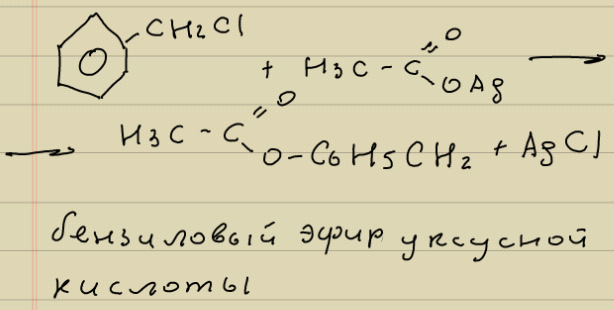 CH2Cl
+ H3C - C = O - OAg →
→ H3C - C = O - O - C6H5CH2 + AgCl
бензиловый эфир уксусной
кислоты